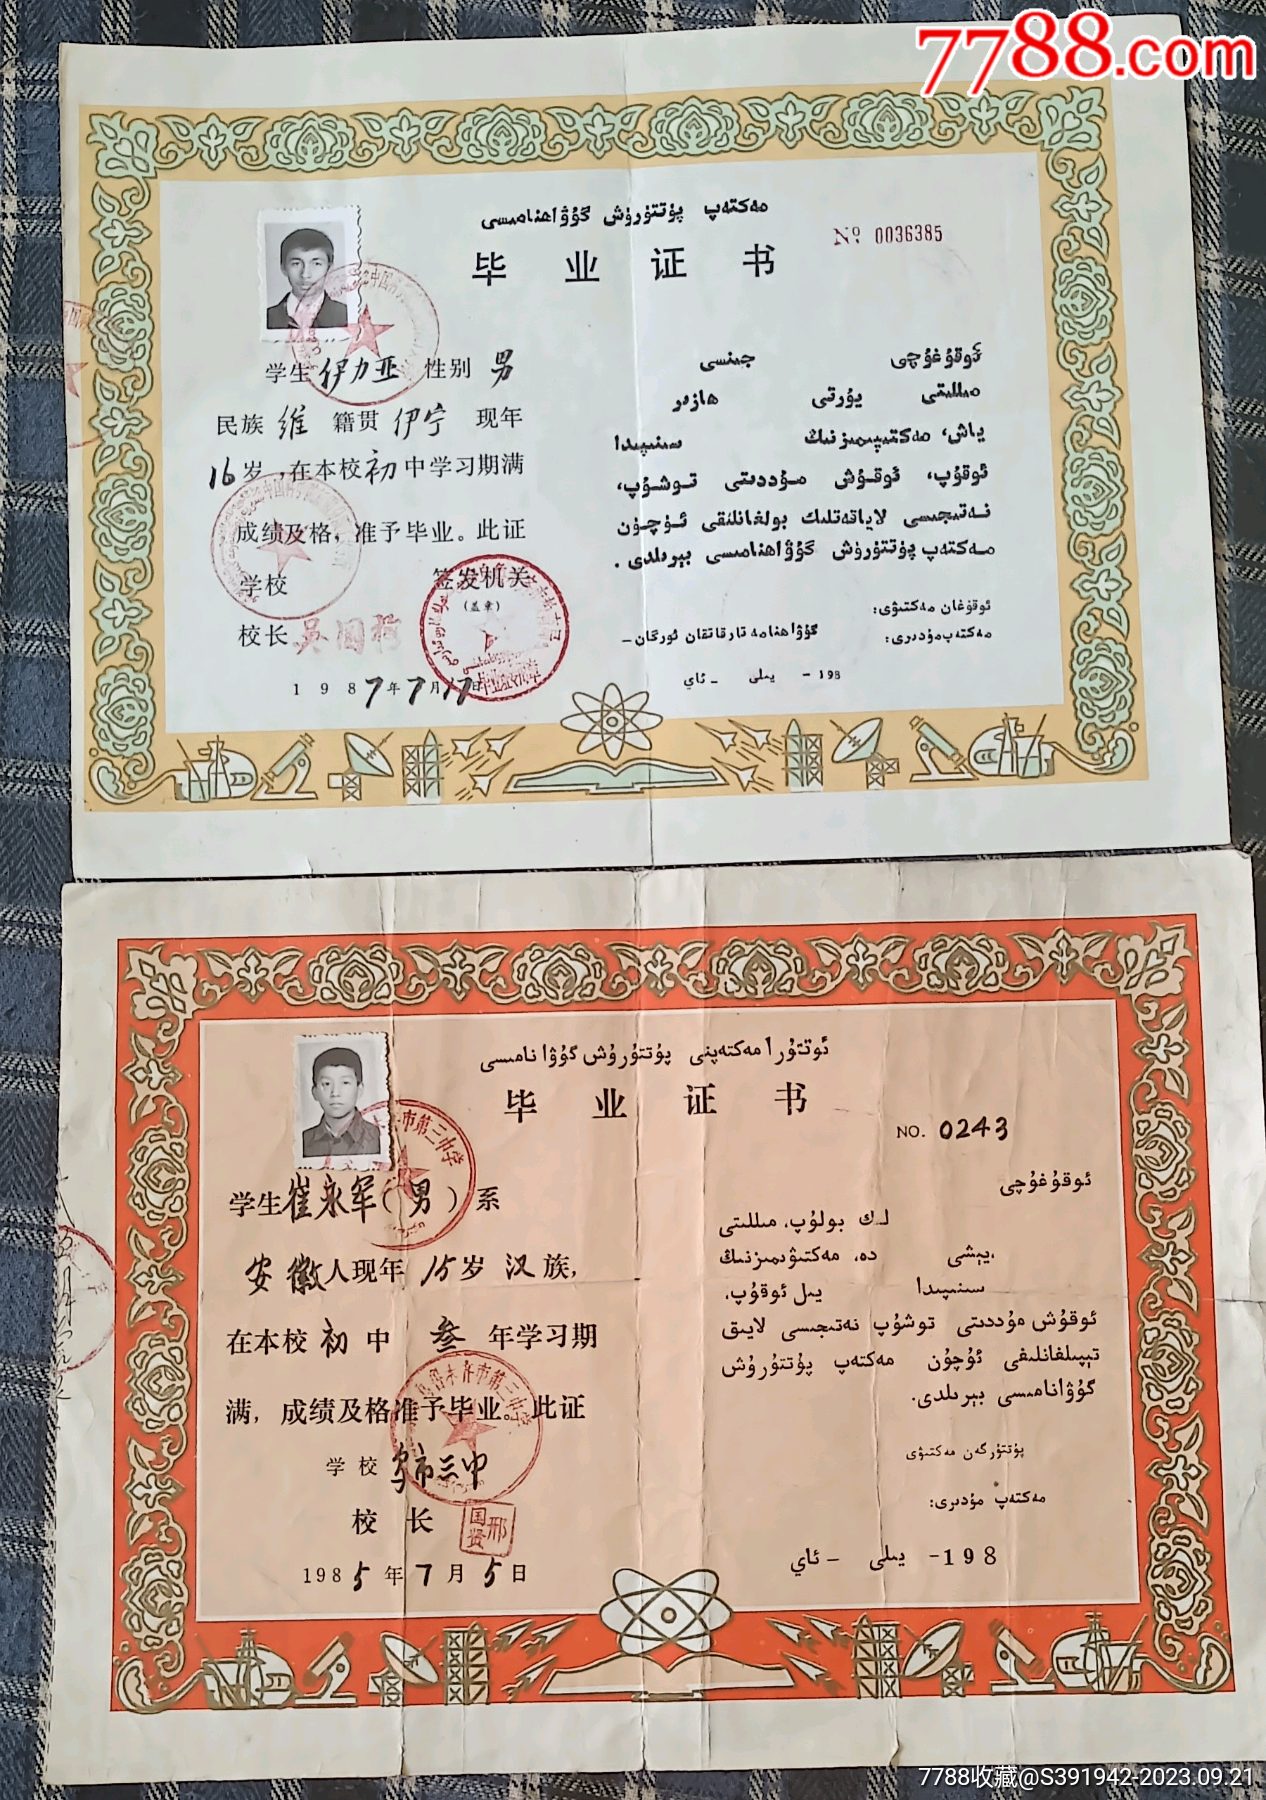 7788.com
مەكتەپ پۈتتۈرۈش گۇۋاھنامىسى
毕业证书
№ 0036385
学生 伊力亚 性别 男
民族 维 籍贯 伊宁 现年
16岁,在本校初中学习期满
成绩及格,准予毕业。此证
学校 签发机关
(盖章)
校长
1987年7月17日
ئوقۇغۇچى جىنسى
مىللىتى يۇرتى ھازىر
ياش، مەكتىپىمىزنىڭ سىنىپىدا
ئوقۇپ، ئوقۇش مۇددىتى توشۇپ،
نەتىجىسى لاياقەتلىك بولغانلىقى ئۈچۈن
مەكتەپ پۈتتۈرۈش گۇۋاھنامىسى بېرىلدى.
ئوقۇغان مەكتىۋى:
گۇۋاھنامە تارقاتقان ئورگان- مەكتەپ مۇدىرى:
198- يىلى - ئاي
ئوتتۇرا مەكتەپنى پۈتتۈرۈش گۇۋانامىسى
毕业证书
NO. 0243
学生崔永军(男)系
安徽人现年15岁汉族,
在本校初中叁年学习期
满,成绩及格准予毕业。此证
学校 乌市三中
校长 邢国贤
1985年7月5日
ئوقۇغۇچى
لىك بولۇپ، مىللىتى
،يېشى دە، مەكتىۋىمىزنىڭ
سىنىپىدا يىل ئوقۇپ،
ئوقۇش مۇددىتى توشۇپ نەتىجىسى لايىق
تېپىلغانلىغى ئۈچۈن مەكتەپ پۈتتۈرۈش
گۇۋانامىسى بېرىلدى.
پۈتتۈرگەن مەكتىۋى
مەكتەپ مۇدىرى:
198- يىلى - ئاي
7788收藏@S391942-2023.09.21